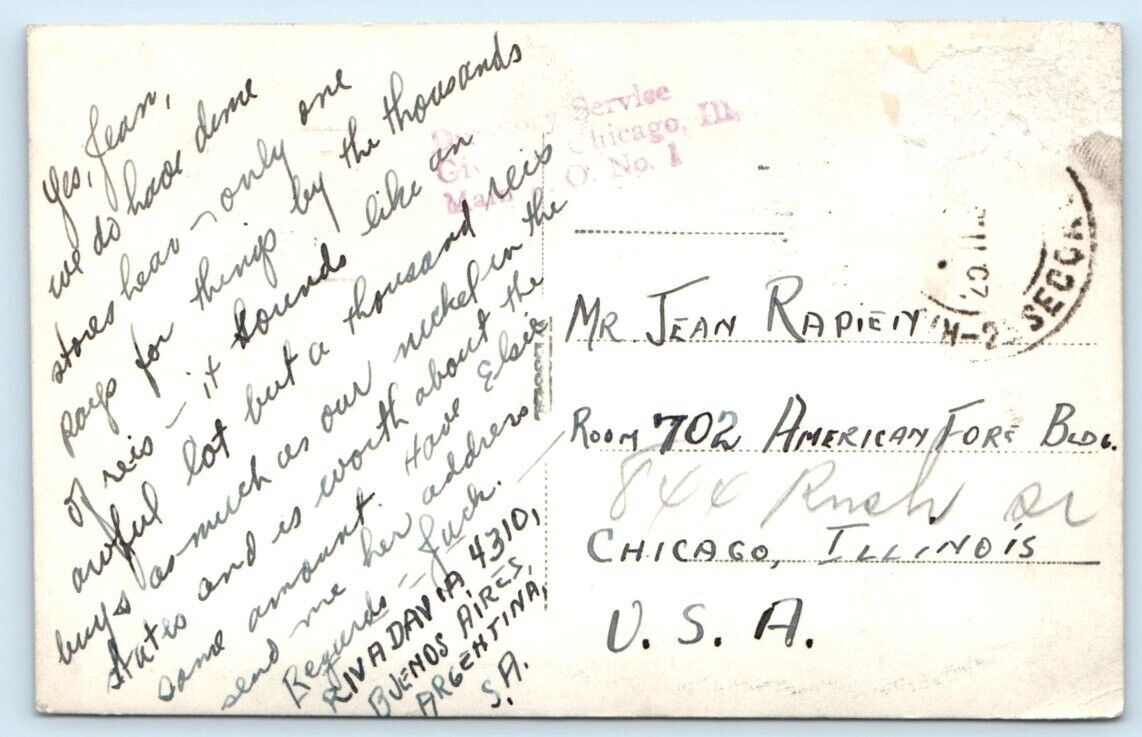 Yes, Jean,
we do have dime
stores hear – only one
pays for things by the thousands
of reis – it sounds like an
awful lot but a thousand reis
buys as much as our nickel in the
states and is worth about the
same amount. Have Elsie
send me her address.
Regards – Jack.
RIVADAVIA 4310,
BUENOS AIRES,
ARGENTINA,
S.A.
Directory Service
Chicago, Ill.
O. No. 1
MR JEAN RAPIEN
ROOM 702 AMERICAN FORE BLDG.
844 Rush St
CHICAGO, ILLINOIS
U. S. A.
SECCA